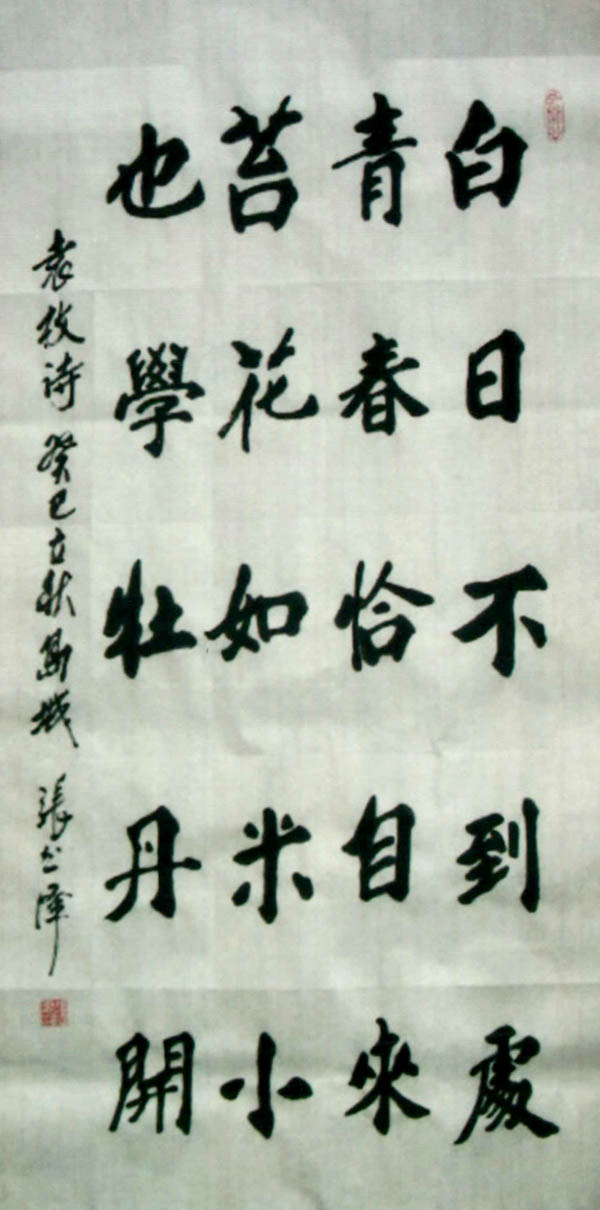 白日不到處
青春恰自來
苔花如米小
也學牡丹開
袁枚詩 癸巳立秋島城 張